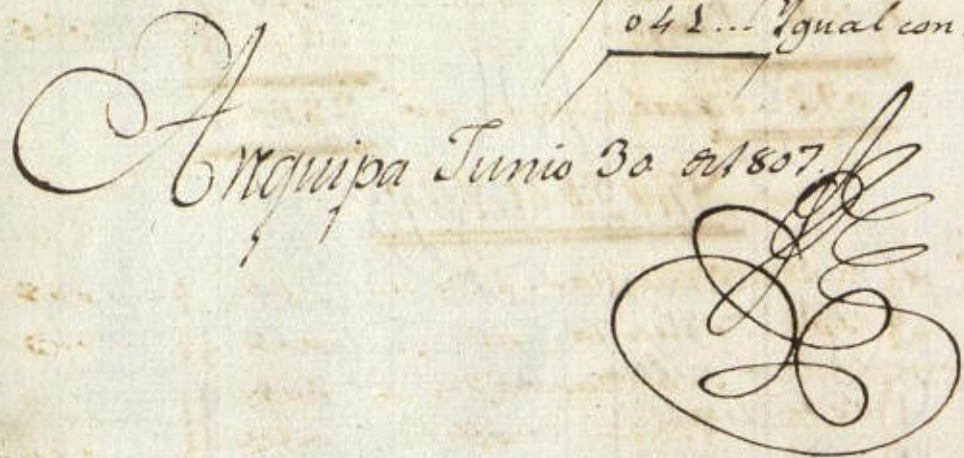 041... Igual con
Arequipa Junio 30 de 1807.